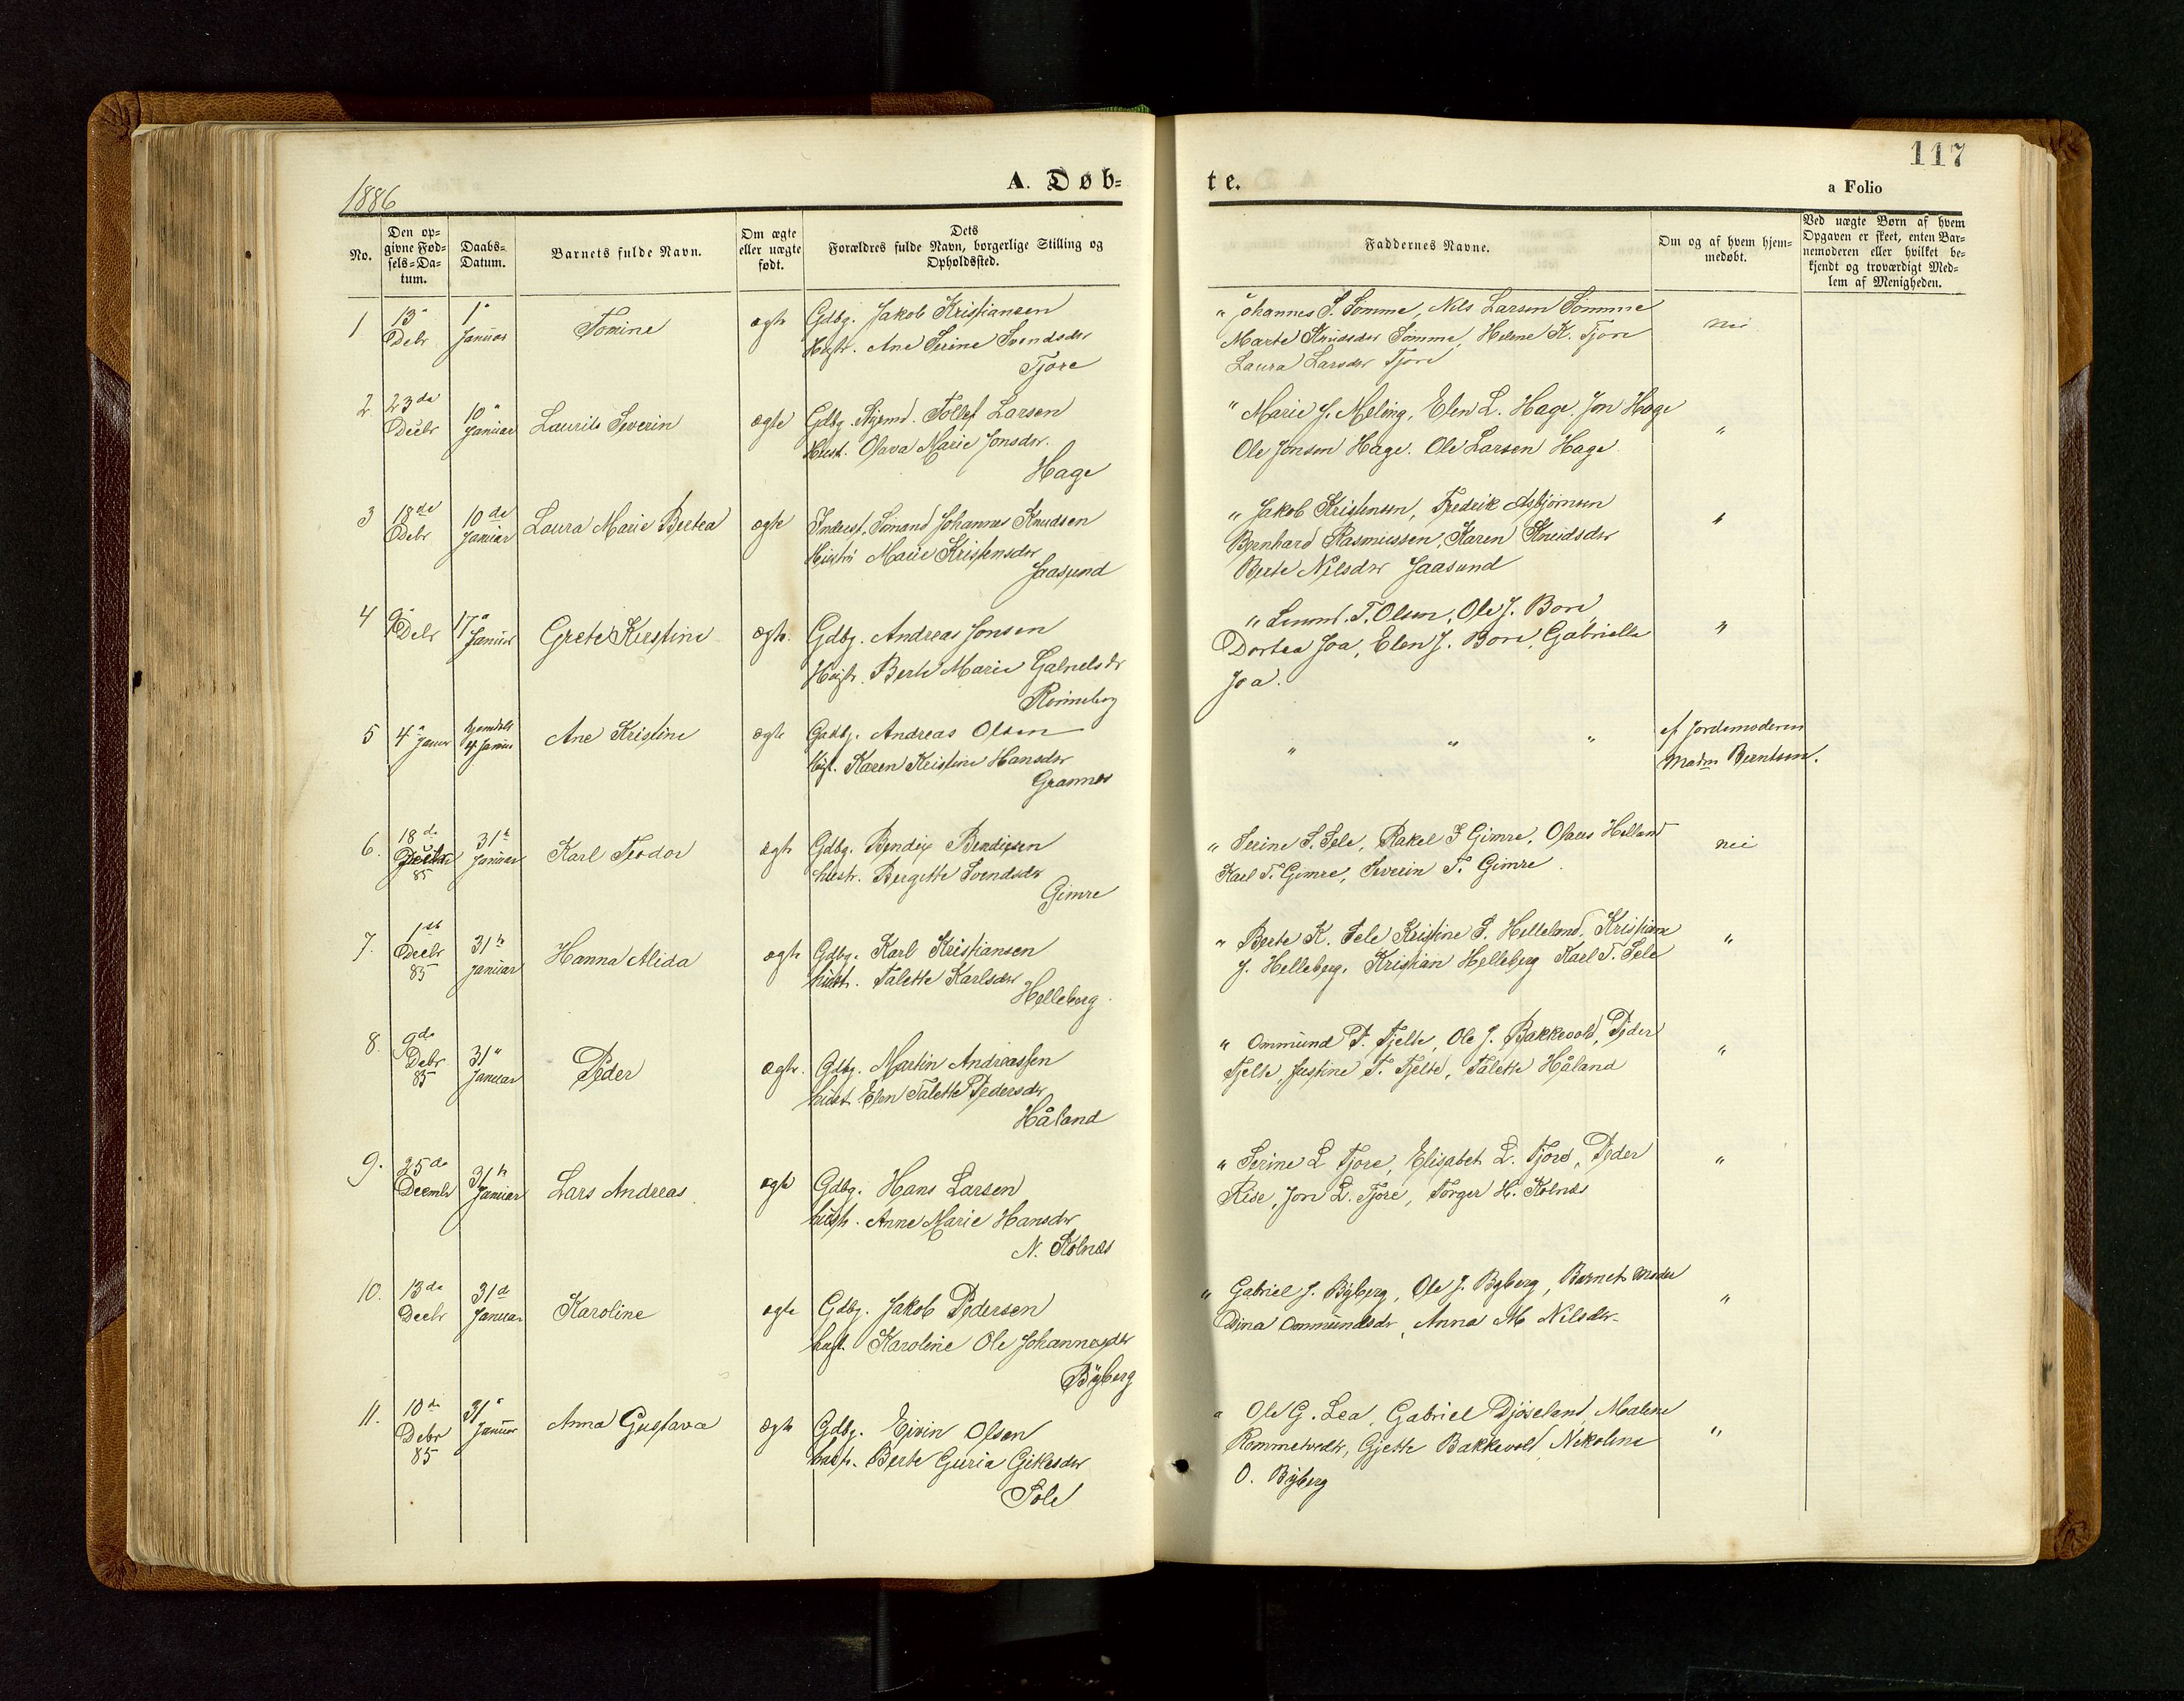 117
1886
A. Døb-
te.
a Folio
No.
Den op-
givne Fød-
sels-Da-
tum.
Daabs-
Datum.
Barnets fulde Navn.
Om ægte
eller uægte
født.
Dets
Forældres fulde Navn, borgerlige Stilling og
Opholdssted.
Faddernes Navne.
Om og af hvem hjem-
medøbt.
Ved uægte Børn af hvem
Opgaven er skeet, enten Bar-
nemoderen eller hvilket be-
kjendt og troværdigt Med-
lem af Menigheden.
1
13"
Debr
1"
Januar
Tomine
ægte
Gdbg. Jakob Kristiansen
Hustr. Ane Serine Svendsdtr
Tjore
" Johannes S. Sømme, Nils Larsen Sømme
Marte Knudsdtr Sømme, Helene K. Tjore
Laura Larsdtr Tjore
nei
2
23de
Decbr
10"
Januar
Laurits Severin
ægte
Gdbg. Tollef Larsen
Hust. Olava Marie Jonsdtr.
Hage
" Marie J. Meling, Elen L. Hage. Jon Hage
Ole Jonsen Hage. Ole Larsen Hage
"
3
18de
Debr
10de
Januar
Laura Marie Bertea
ægte
Inderst, Sømand Johannes Knudsen
Hustr. Marie Kristensdtr
Jaasund
" Jakob Kristensen, Fredrik Asbjørnsen
Bernhard Rasmussen, Karen Knudsdtr
Berte Nilsdtr Jaasund
"
4
9"
Debr
17"
Januar
Grete Kirstine
ægte.
Gdbg. Andreas Jonsen
Hustr. Berte Marie Gabrielsdr
Rønneberg
" T. Olsen, Ole J. Bore
Dortea Joa, Elen J. Bore, Gabrielle
Joa.
"
5
4"
Januar
hjemdøbt
4 Januar
Ane Kristine
ægte
Gadbg. Andreas Olsen
Hust. Karen Kristine Hansdtr
Grannes
" " "
af Jordemoderen
Madm Berntsen.
6.
18de
Decbr
85
31te
Januar
Karl Teodor
ægte
Gdbg. Bendix Bendixen
hustr. Bergitte Svendsdtr
Gimre
" Serine S. Sele, Rakel S Gimre, Olaus Helland
Karl T. Gimre, Severin T. Gimre.
nei
7.
1ste
Decbr
85
31te
Januar
Hanna Alida
ægte
Gdbg. Karl Kristiansen
hustr. Talette Karlsdtr
Helleberg.
" Berte K. Sele Kristine S. Helleland, Kristiane
J. Helleberg, Kristian Helleberg Karl T. Sele
"
8.
9de
Debr
85
31"
Januar
Peder
ægte.
Gdbg. Martin Andreassen
hust Elen Talette Pedersdtr
Håland
" Ommund P. Tjelte, Ole J. Bakkevold, Peder
Tjelte, Justine T. Tjelte, Talette Håland
"
9.
25de
Decmbr
31te
Januar
Lars Andreas
ægte
Gdbg. Hans Larsen
hustr. Anne Marie Hansdtr
N. Kolnes
" Serine L Tjore, Elisabet L. Tjore, Peder
Risa, Jon L. Tjore, Torger H. Kolnes
"
10.
13de
Decbr
31d
Januar
Karoline
ægte
Gdbg. Jakob Pedersen
hust. Karoline Ole Johannesdtr
Byberg
" Gabriel J. Byberg, Ole J. Byberg, Barnets Moder
Dina Ommundsdr, Anna M Nilsdtr.
"
11.
10de
Debr
85
31"
Januar
Anna Gustava
ægte
Gdbg. Eivin Olsen
hustr. Berte Guria
Sole
" Ole G. Lea, Gabriel Malene
Rommetvedt, Gjette Bakkevold, Nikoline
O. Byberg
"